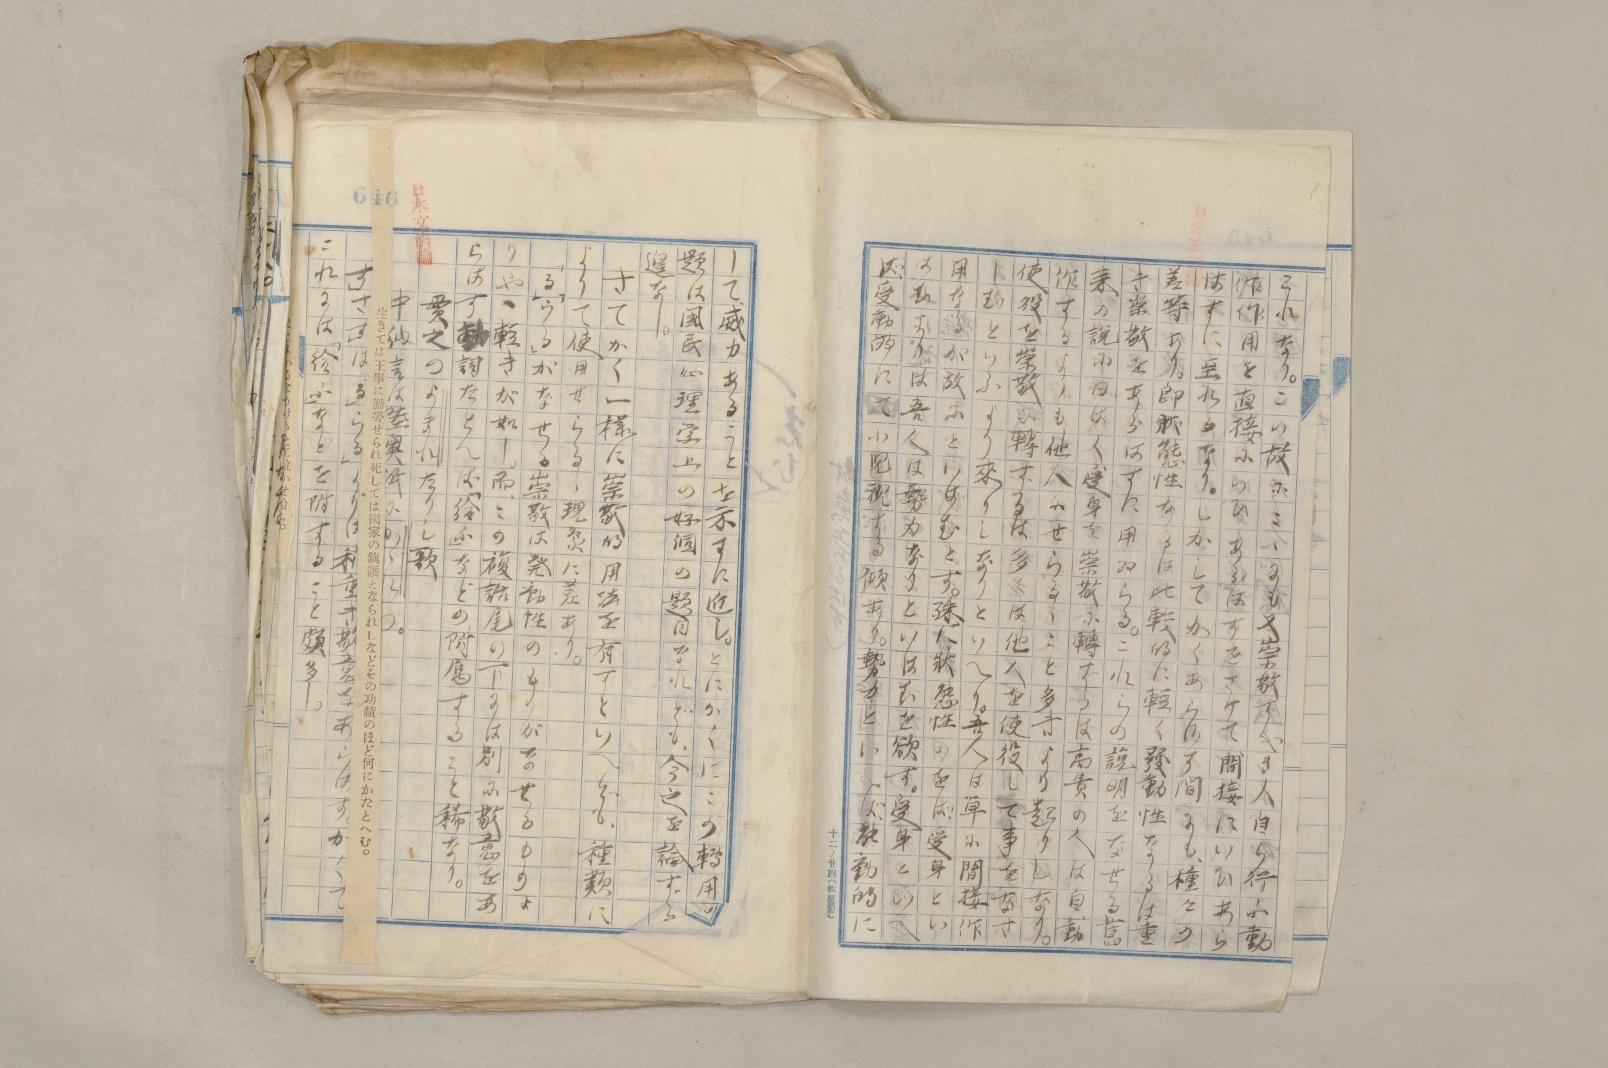 これなり。この故にこゝにも又崇敬すべき人自ら行ふ動
作作用を直接にいひあらはすをさけて間接にいひあら
はすに至れるなり。しかしてかくあらはす間にも、種々の
差等あり。即状態性なるは比較的に軽く發動性なるは重
き崇敬をあらはすに用ゐらる。これらの説明をなせる舊
来の説に曰はく受身を崇敬に轉ずるは高貴の人は自動
作するよりも他人にせらるゝこと多きより起りしなり。
使役を崇敬に轉ずるは多くは他人を使役して事をなさ
しむといふより來りしなりといへり。吾人は単に間接作
用なるが故にといはむとす。殊に状態性のをば受身とい
はむよりは吾人は勢力なりといはむを欲す。受身といへ
ば受動的にて小児視する傾あり。勢力といへば能動的に
十二ノ廿四(松屋製)
646
日本文法論
して威力あることを示すに近し。とにかくにこの轉用
題は國民心理学上の好個の題目なれども、今之を論ずる
遑なし。
さてかく一様に崇敬的用法を有すといへども、種類に
よりて使用せらるゝ現象に差あり。
「る」「らる」がなせる崇敬は発動性のものがなせるものよ
りやゝ軽きが如し。而、この複語尾の下には別に敬意をあ
らはす動詞たとへば「給ふ」などの附属すること稀なり。
貫之のよまれたりし歌
中納言は陸奥守に
生きては王事に勤勞せられ死しては國家の鎮護となられしなどその功績のほど何にかたとへむ。
「す」「さす」は「る」「らる」よりは利重き敬意をあらはす。かくて
これには「給ふ」などを附すること頗多し。